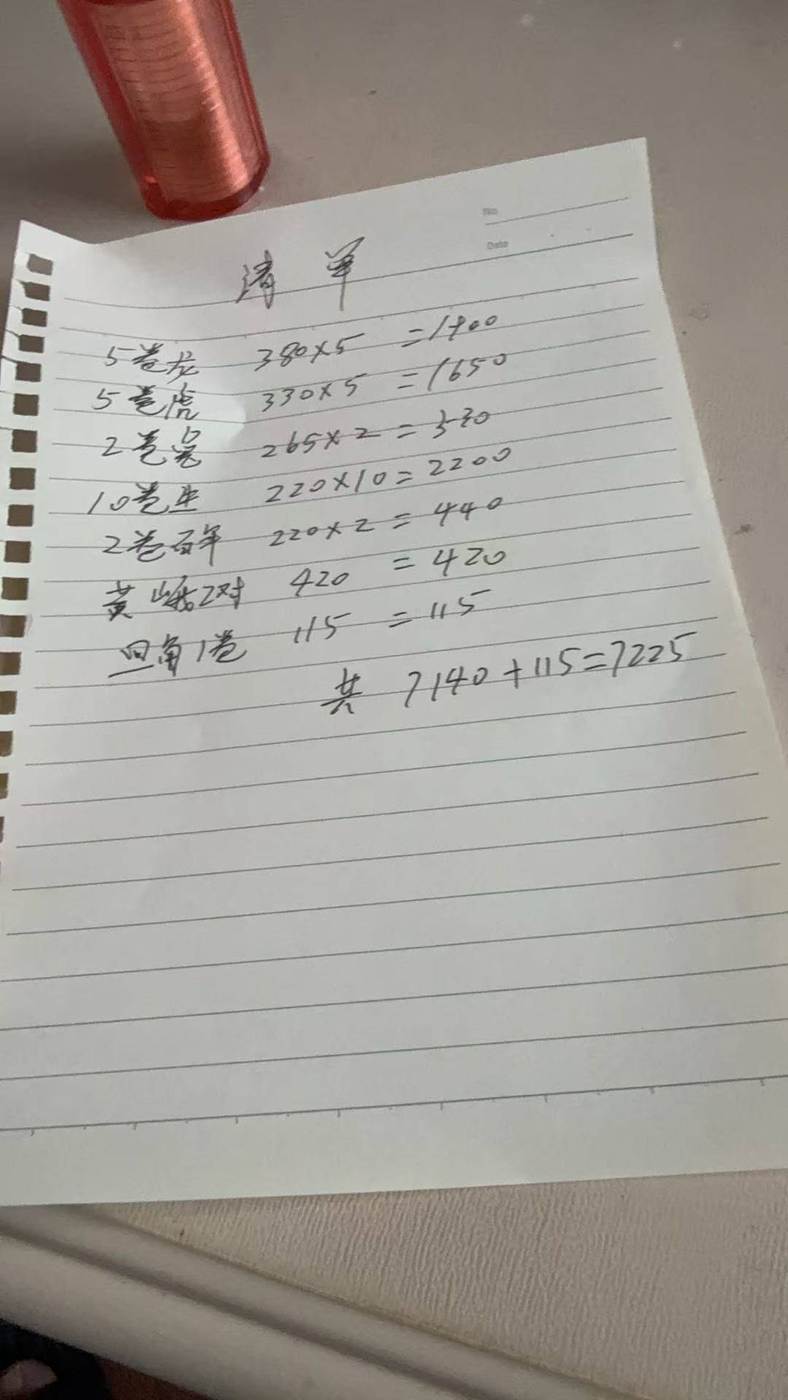 No
Date
清单
5卷龙 380×5 =1900
5卷虎 330×5 =1650
2卷 265×2 =530
10卷 220×10=2200
2卷百年 220×2 =440
黄峨2对 420 =420
四角1卷 115 =115
共 7140+115=7225